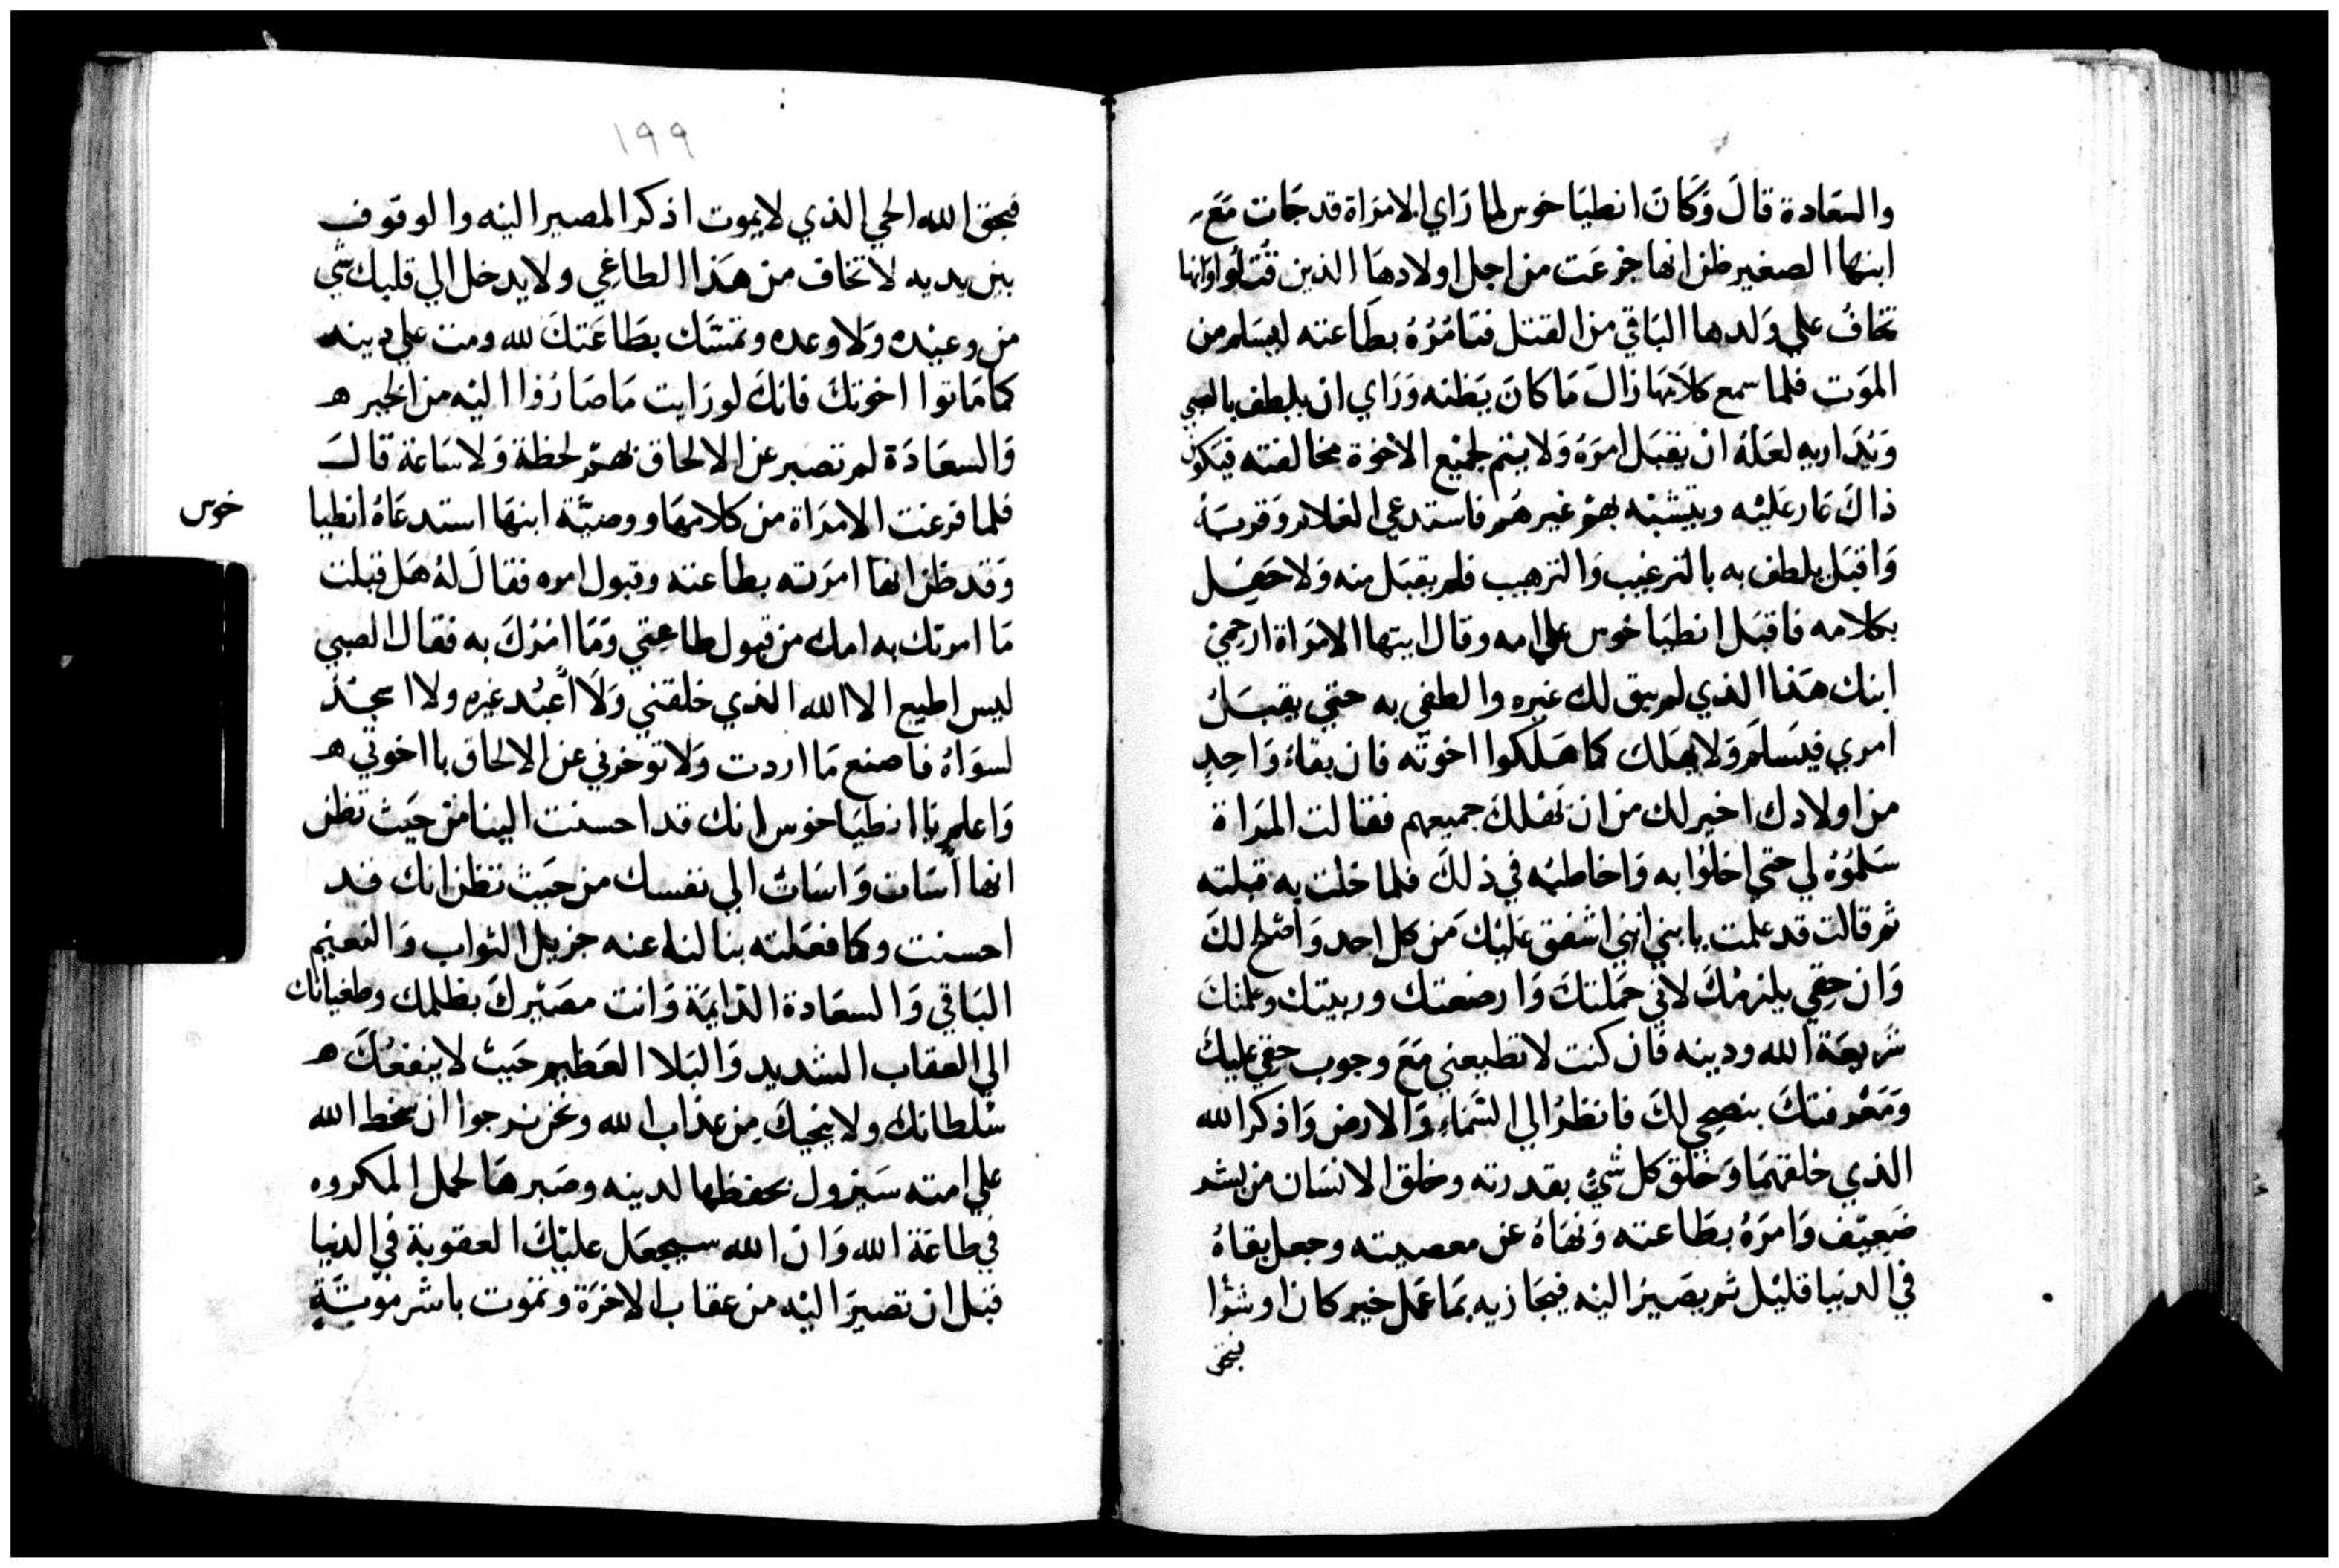 والسعادة قال وكان انطياخوس لما راي الامراة قد جات مع
ابنها الصغير ظن انها جزعت من اجل اولادها الذين قتلوا وانها
تخاف علي ولدها الباقي من القتل فتامره بطاعته ليسلم من
الموت فلما سمع كلامها زال ما كان يظنه وراي ان يلطف بالصبي
ويداريه لعله ان يقبل امره ولا يتم لجميع الاخوة مخالفته فيكون
ذاك عار عليه ويتشبه بهم غيرهم فاستدعي الغلام وقربه
واقبل يلطف به بالترغيب والترهيب فلم يقبل منه ولا حفل
بكلامه فاقبل انطياخوس علي امه وقال ايتها الامراة ارحمي
ابنك هذا الذي لم يبق لك غيره والطفي به حتي يقبل
امري فيسلم ولا يهلك كما هلكوا اخوته فان بقاء واحد
من اولادك اخير لك من ان تهلك جميعهم فقالت المراة
سلموه لي حتي اخلوا به واخاطبه في ذلك فلما خلت به قبلته
ثم قالت قد علمت يا بني انني اشفق عليك من كل احد وانصح لك
وان حقي يلزمك لاني حملتك وارضعتك وربيتك وعلمتك
شريعة الله ودينه فان كنت لا تطيعني مع وجوب حقي عليك
ومعرفتك بنصحي لك فانظر الي السماء والارض واذكر الله
الذي خلقهما وخلق كل شيء بقدرته وخلق الانسان من بشر
ضعيف وامره بطاعته ونهاه عن معصيته وجعل بقاه
في الدنيا قليل ثم يصير اليه فيجازيه بما عمل خير كان او شوا
فبحق
١٩٩
فبحق الله الحي الذي لا يموت اذكر المصير اليه والوقوف
بين يديه لا تخاف من هذا الطاغي ولا يدخل الي قلبك شي
من وعيده ولا وعده وتمسك بطاعتك لله ومت علي دينه
كما ماتوا اخوتك فانك لو رايت ما صاروا اليه من الخير ه
والسعادة لم تصبر عن الالحاق بهم لحظة ولا ساعة قال
فلما فرغت الامراة من كلامها ووصية ابنها استدعاه انطيا
خوس
وقد ظن انها امرته بطاعته وقبول امره فقال له هل قبلت
ما امرتك به امك من قبول طاعتي وما امرك به فقال الصبي
ليس اطيع الا الله الذي خلقني ولا اعبد غيره ولا اسجد
لسواه فاصنع ما اردت ولا توخرني عن الالحاق بااخوتي ه
واعلم يا انطياخوس انك قد احسنت الينا من حيث تظن
انها اسات واسات الي نفسك من حيث تظن انك قد
احسنت وكما فعلته بنا لنا عنه جزيل الثواب والنعيم
الباقي والسعادة الدايمة وانت مصيرك بظلمك وطغيانك
الي العقاب الشديد والبلا العظيم حيث لا ينفعك ه
سلطانك ولا ينجيك من عذاب الله ونحن نرجوا ان سخط الله
علي امته سيزول بحفظها لدينه وصبرها لحمل المكروه
في طاعة الله وان الله سيجعل عليك العقوبة في الدنيا
قبل ان تصير اليه من عقاب الاخرة وتموت باشر موتة